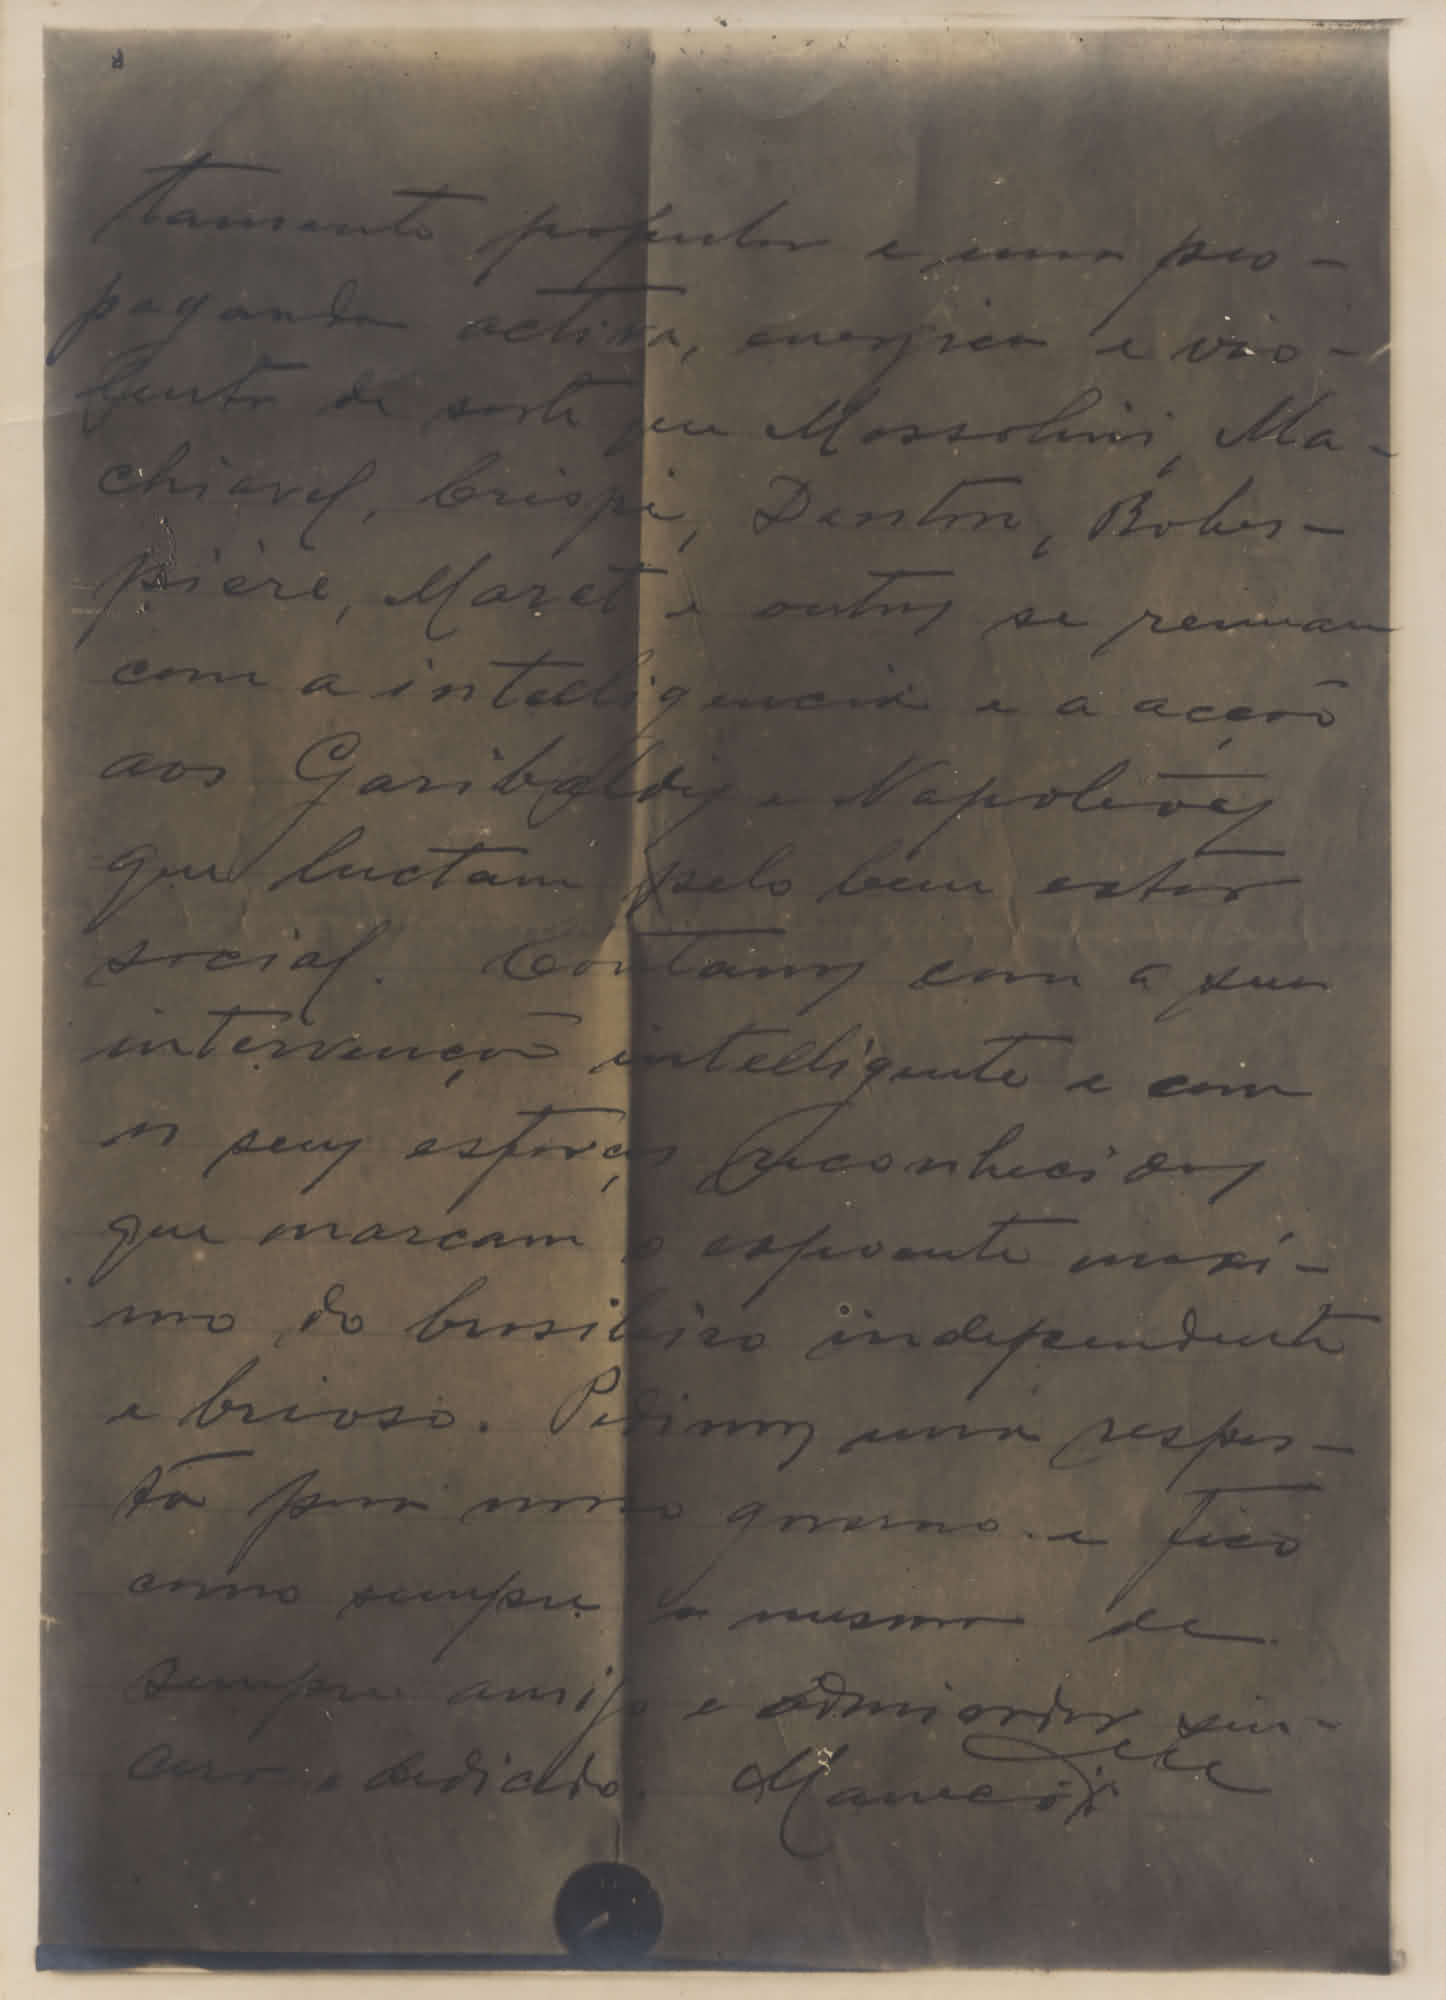 tamento popular e uma pro-
paganda activa, energica e vio-
lenta de sorte que Mossolini, Ma-
chiavel, Crispi, Danton, Robes-
pière, Maret e outros se reunam
com a intelligencia e a acção
aos Garibaldis e Napoleões
que luctam pelo bem estar
social. Contamos com a sua
intervenção intelligente e com
os seus esforços reconhecidos
que marcam o expoente maxi-
mo do brasileiro independente
e brioso. Pedimos uma respos-
ta para nosso governo e fico
como sempre o mesmo de
sempre amigo e admirador sin-
cero e dedicado.